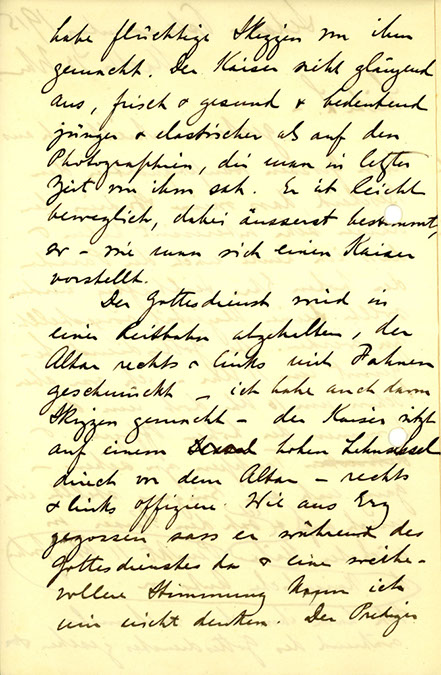 habe flüchtige Skizzen von ihm
gemacht. Der Kaiser sieht glänzend
aus, frisch & gesund & bedeutend
jünger & elastischer als auf den
Photographien, die man in letzter
Zeit von ihm sah. Er ist leicht
beweglich, dabei äusserst bestimmt,
er - wie man sich einen Kaiser
vorstellt.
Der Gottesdienst wird in
einer Reitbahn abgehalten, der
Altar rechts & links mit Fahnen
geschmückt - ich habe auch davon
Skizzen gemacht - der Kaiser sitzt
auf einem hohen Lehnsessel
direct vor dem Altar - rechts
& links Offiziere. Wie aus Erz
gegossen sass er während des
Gottesdienstes da & eine weihe-
vollere Stimmung kann ich
mir nicht denken. Der Prediger